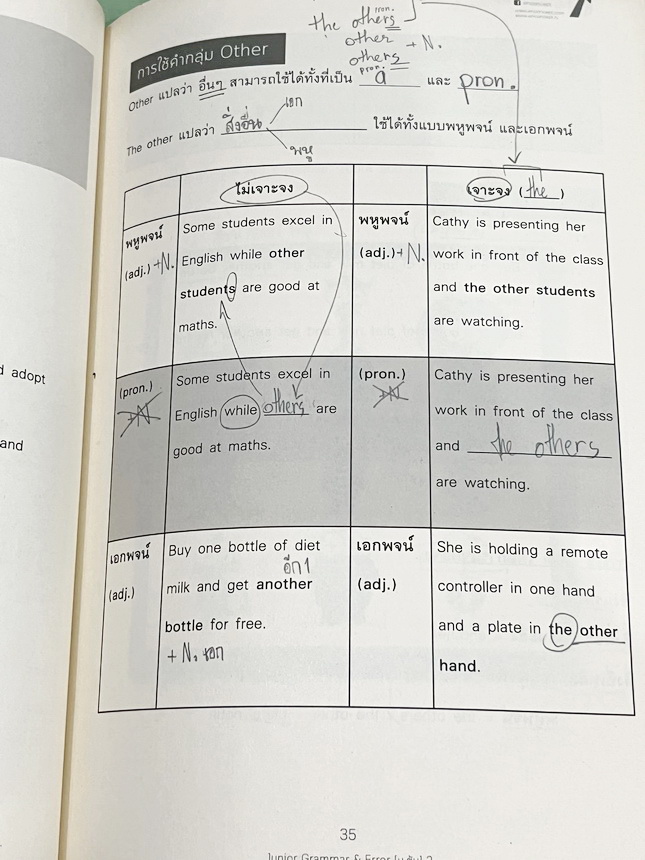 the others pron.
other + N.
others pron.
การใช้คำกลุ่ม Other
Other แปลว่า อื่นๆ สามารถใช้ได้ทั้งที่เป็น a และ pron.
เอก
The other แปลว่า สิ่งอื่น ใช้ได้ทั้งแบบพหูพจน์ และเอกพจน์
พหู
ไม่เจาะจง
เจาะจง (the)
พหูพจน์
(adj.) +N.
Some students excel in
English while other
students are good at
maths.
พหูพจน์
(adj.) + N.
Cathy is presenting her
work in front of the class
and the other students
are watching.
(pron.)
+N
Some students excel in
English while others are
good at maths.
(pron.)
+N
Cathy is presenting her
work in front of the class
and the others
are watching.
เอกพจน์
(adj.)
Buy one bottle of diet
อีก 1
milk and get another
bottle for free.
+ N. เอก
เอกพจน์
(adj.)
She is holding a remote
controller in one hand
and a plate in the other
hand.
d adopt
and
35
Junior Grammar & Error